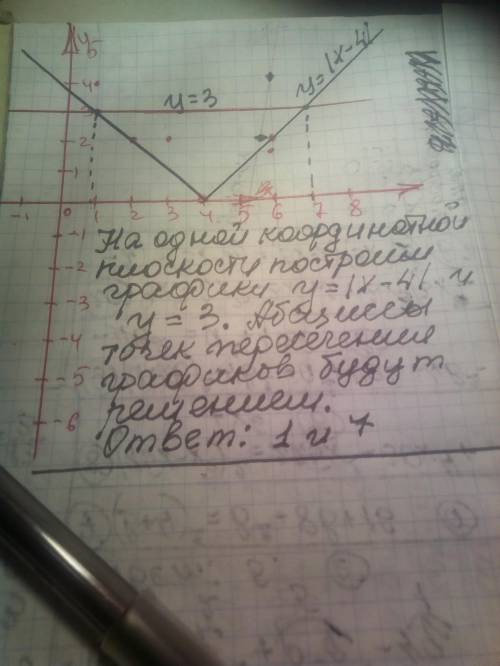 y
5
4
y = 3
y = |x-4|
3
2
1
-1 0 1 2 3 4 5 6 7 8
-1
-2
-3
-4
-5
-6
На одной координатной
плоскости построим
графики y = |x-4| и
y = 3. Абциссы
точек пересечения
графиков будут
решением.
Ответ: 1 и 7